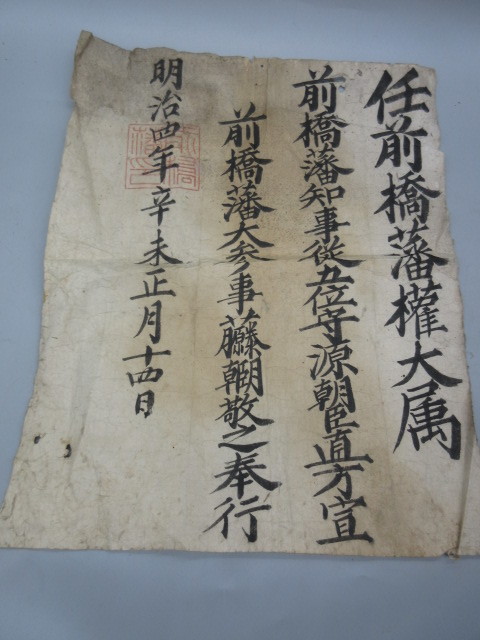 任前橋藩權大属
前橋藩知事從五位守源朝臣直方宣
前橋藩大参事藤朝敬之奉行
明治四年辛未正月十四日